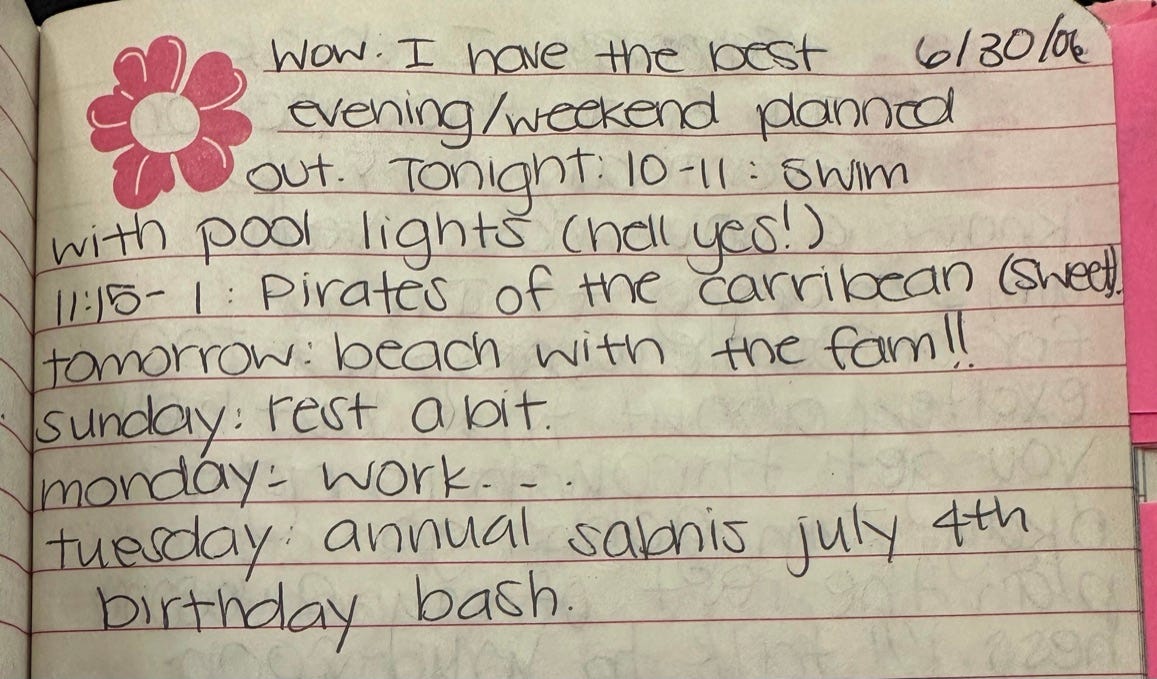 Wow. I have the best 6/30/06
evening/weekend planned
out. Tonight: 10-11: swim
with pool lights (hell yes!)
11:15-1: Pirates of the carribean (sweet).
tomorrow: beach with the fam!!
sunday: rest a bit.
monday: work...
tuesday: annual sabnis july 4th
birthday bash.